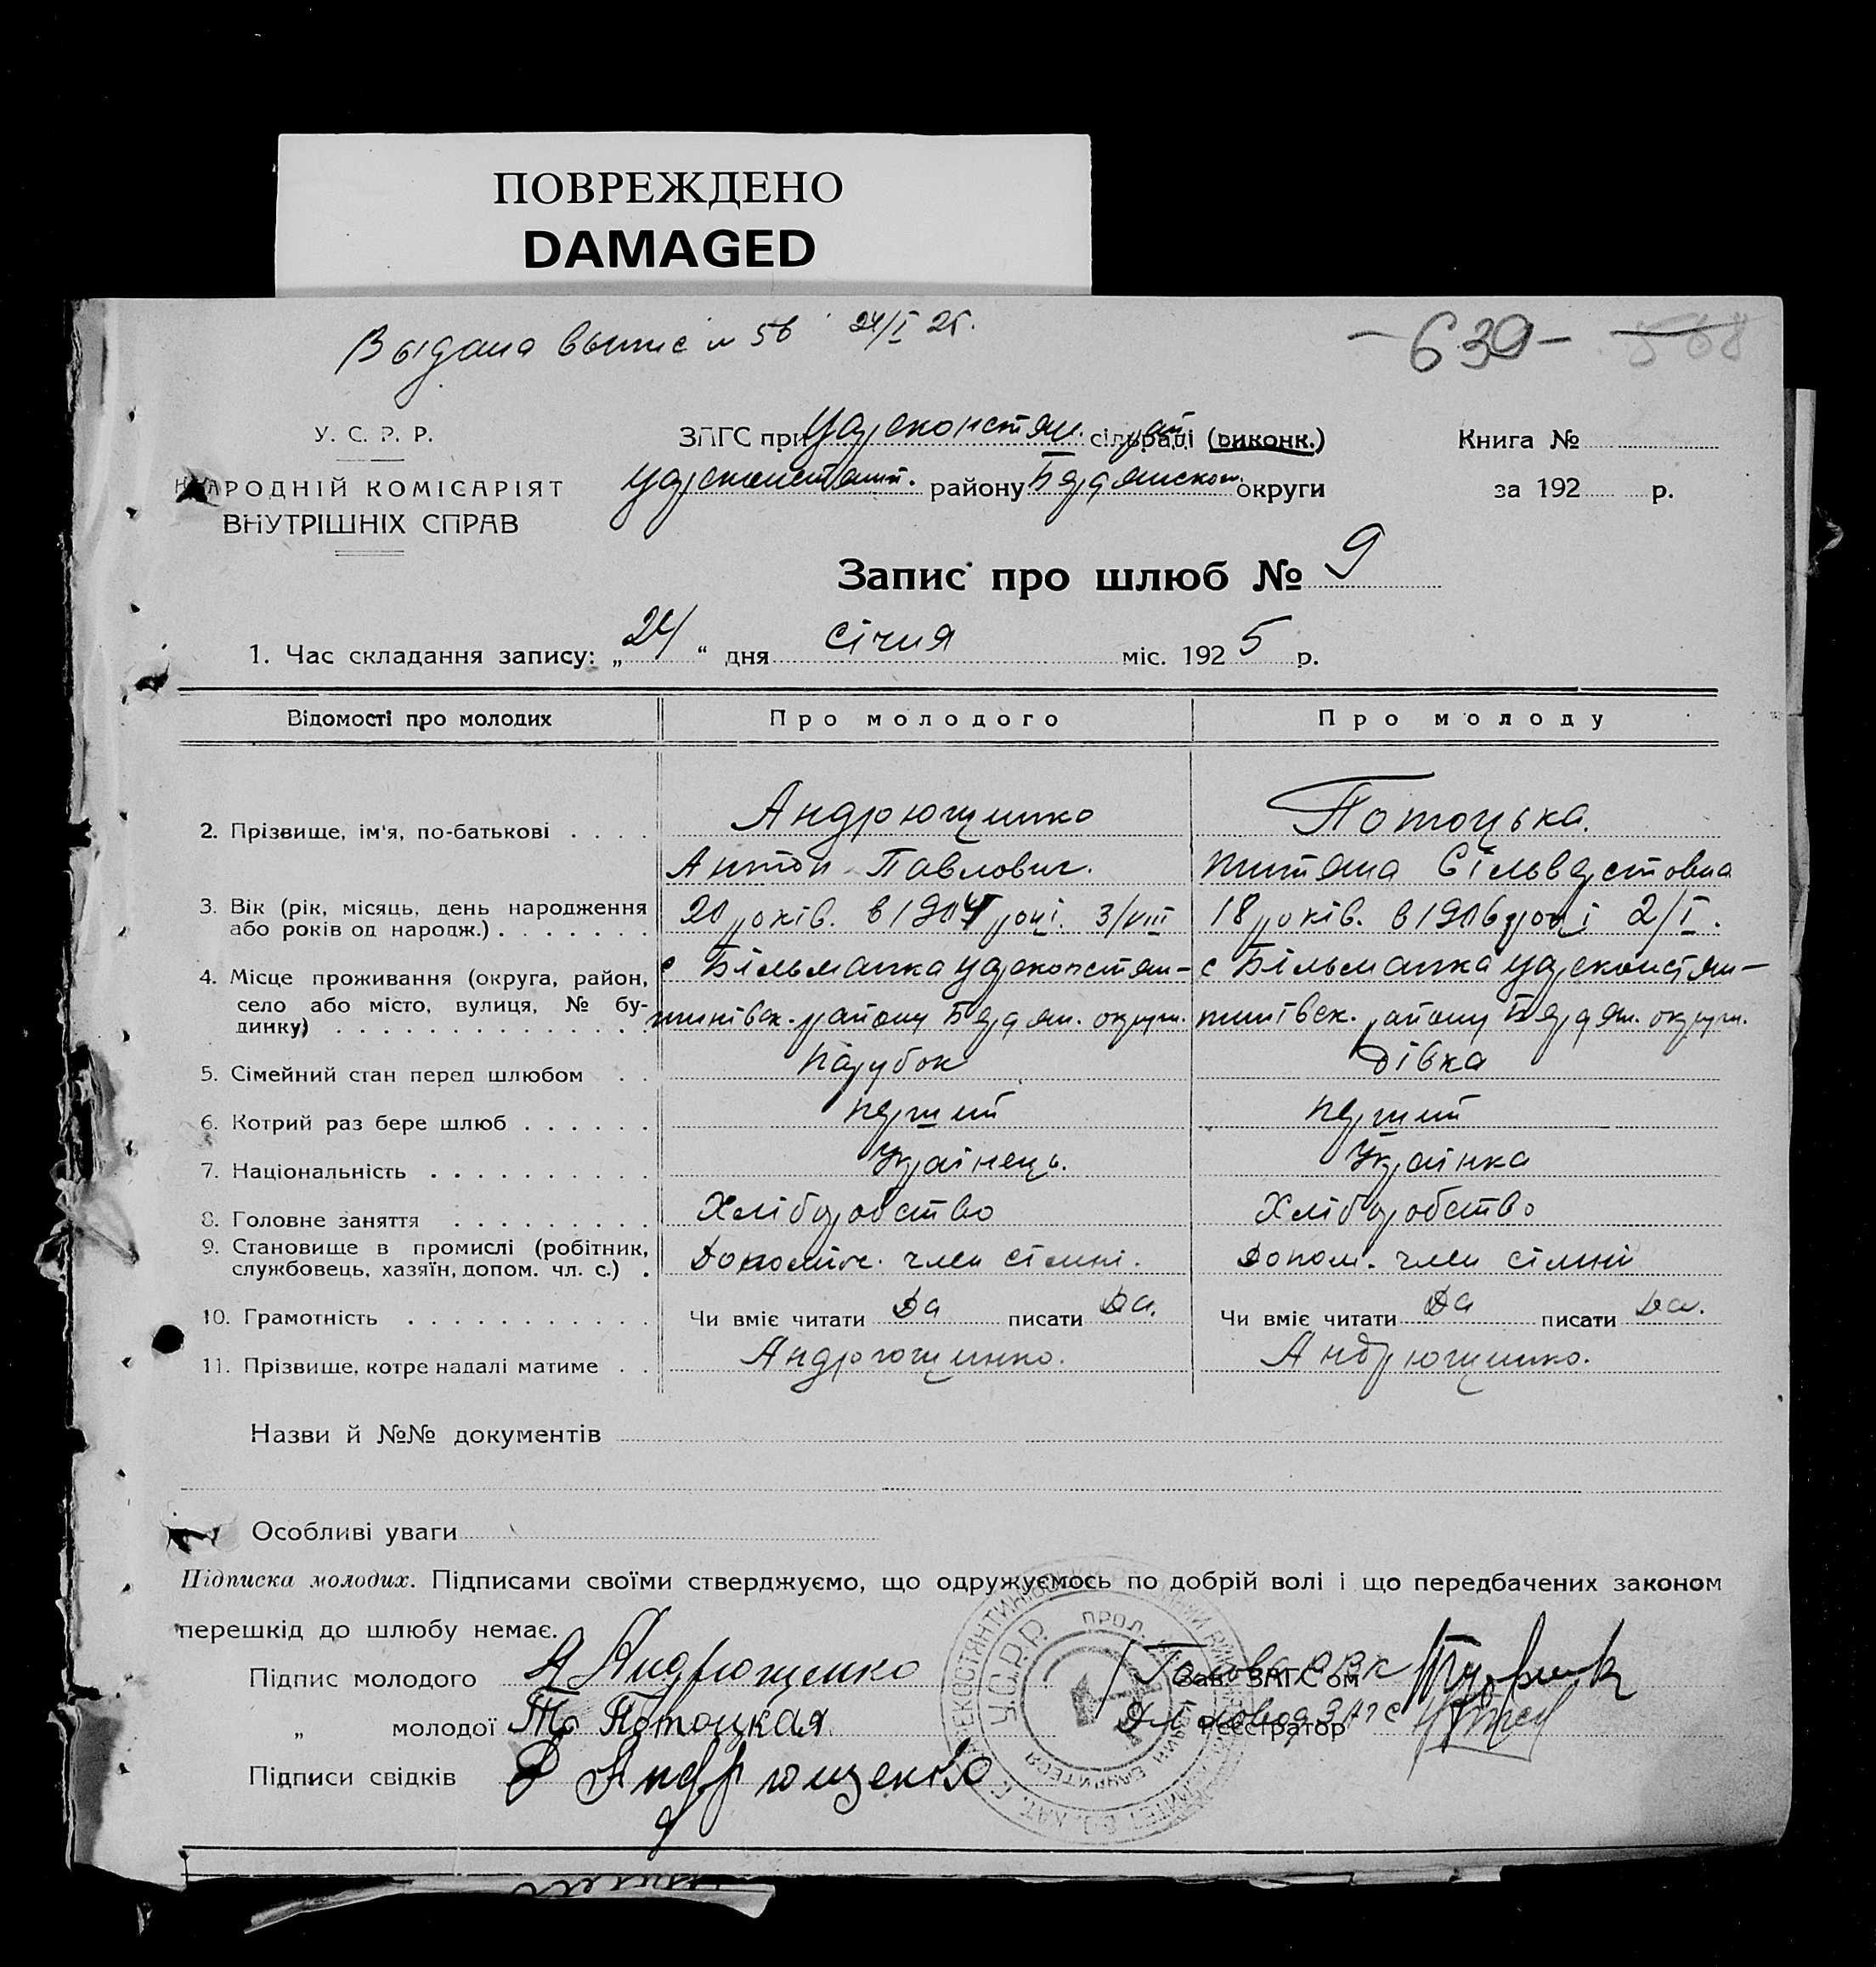 ПОВРЕЖДЕНО
DAMAGED
Выдана выпис № 56 24/I 25.
-639- 568
У. С. Р. Р.
НАРОДНІЙ КОМІСАРІЯТ
ВНУТРІШНІХ СПРАВ
ЗАГС при Царекопстян. рай сільраді (виконк.)
Царекопстянт. району Бердянской округи
Книга №
за 192 р.
Запис про шлюб № 9
1. Час складання запису: „24“ дня січня міс. 1925 р.
Відомості про молодих Про молодого Про молоду
2. Прізвище, ім'я, по-батькові . . . . Андрющинко Потоцька.
Антон Павлович. Титяна Сільверстовна
3. Вік (рік, місяць, день народження 20 років. в 1904 році. 3/VIII 18 років. в 1906 році 2/I.
або років од народж.) . . . . . . .
4. Місце проживання (округа, район, с Більманка Цареконстян- с Більманка Цареконстян-
село або місто, вулиця, № бу- тинівск. району Бердян. округи. тинівск. району Бердян. округи.
динку) . . . . . . . . . . . . .
5. Сімейний стан перед шлюбом . . Парубок Дівка
6. Котрий раз бере шлюб . . . . . . перший перший
7. Національність . . . . . . . . . . Українець. Українка
8. Головне заняття . . . . . . . . . Хліборобство Хліборобство
9. Становище в промислі (робітник, Допоміж. член сімні. Допом. член сімні
службовець, хазяїн, допом. чл. с.) .
10. Грамотність . . . . . . . . . . . Чи вміє читати Да писати Да. Чи вміє читати Да писати Да.
11. Прізвище, котре надалі матиме . . Андрющинко. Андрющинко.
Назви й №№ документів
Особливі уваги
Підписка молодих. Підписами своїми стверджуємо, що одружуємось по добрій волі і що передбачених законом
перешкід до шлюбу немає.
Підпис молодого А Андрющенко Зав. ЗАГС'ом Голова РВК
„ молодої Т. Потоцкая Реєстратор Діловод ЗАГС
Підписи свідків Ф Андрющенко
У.С.Р.Р.